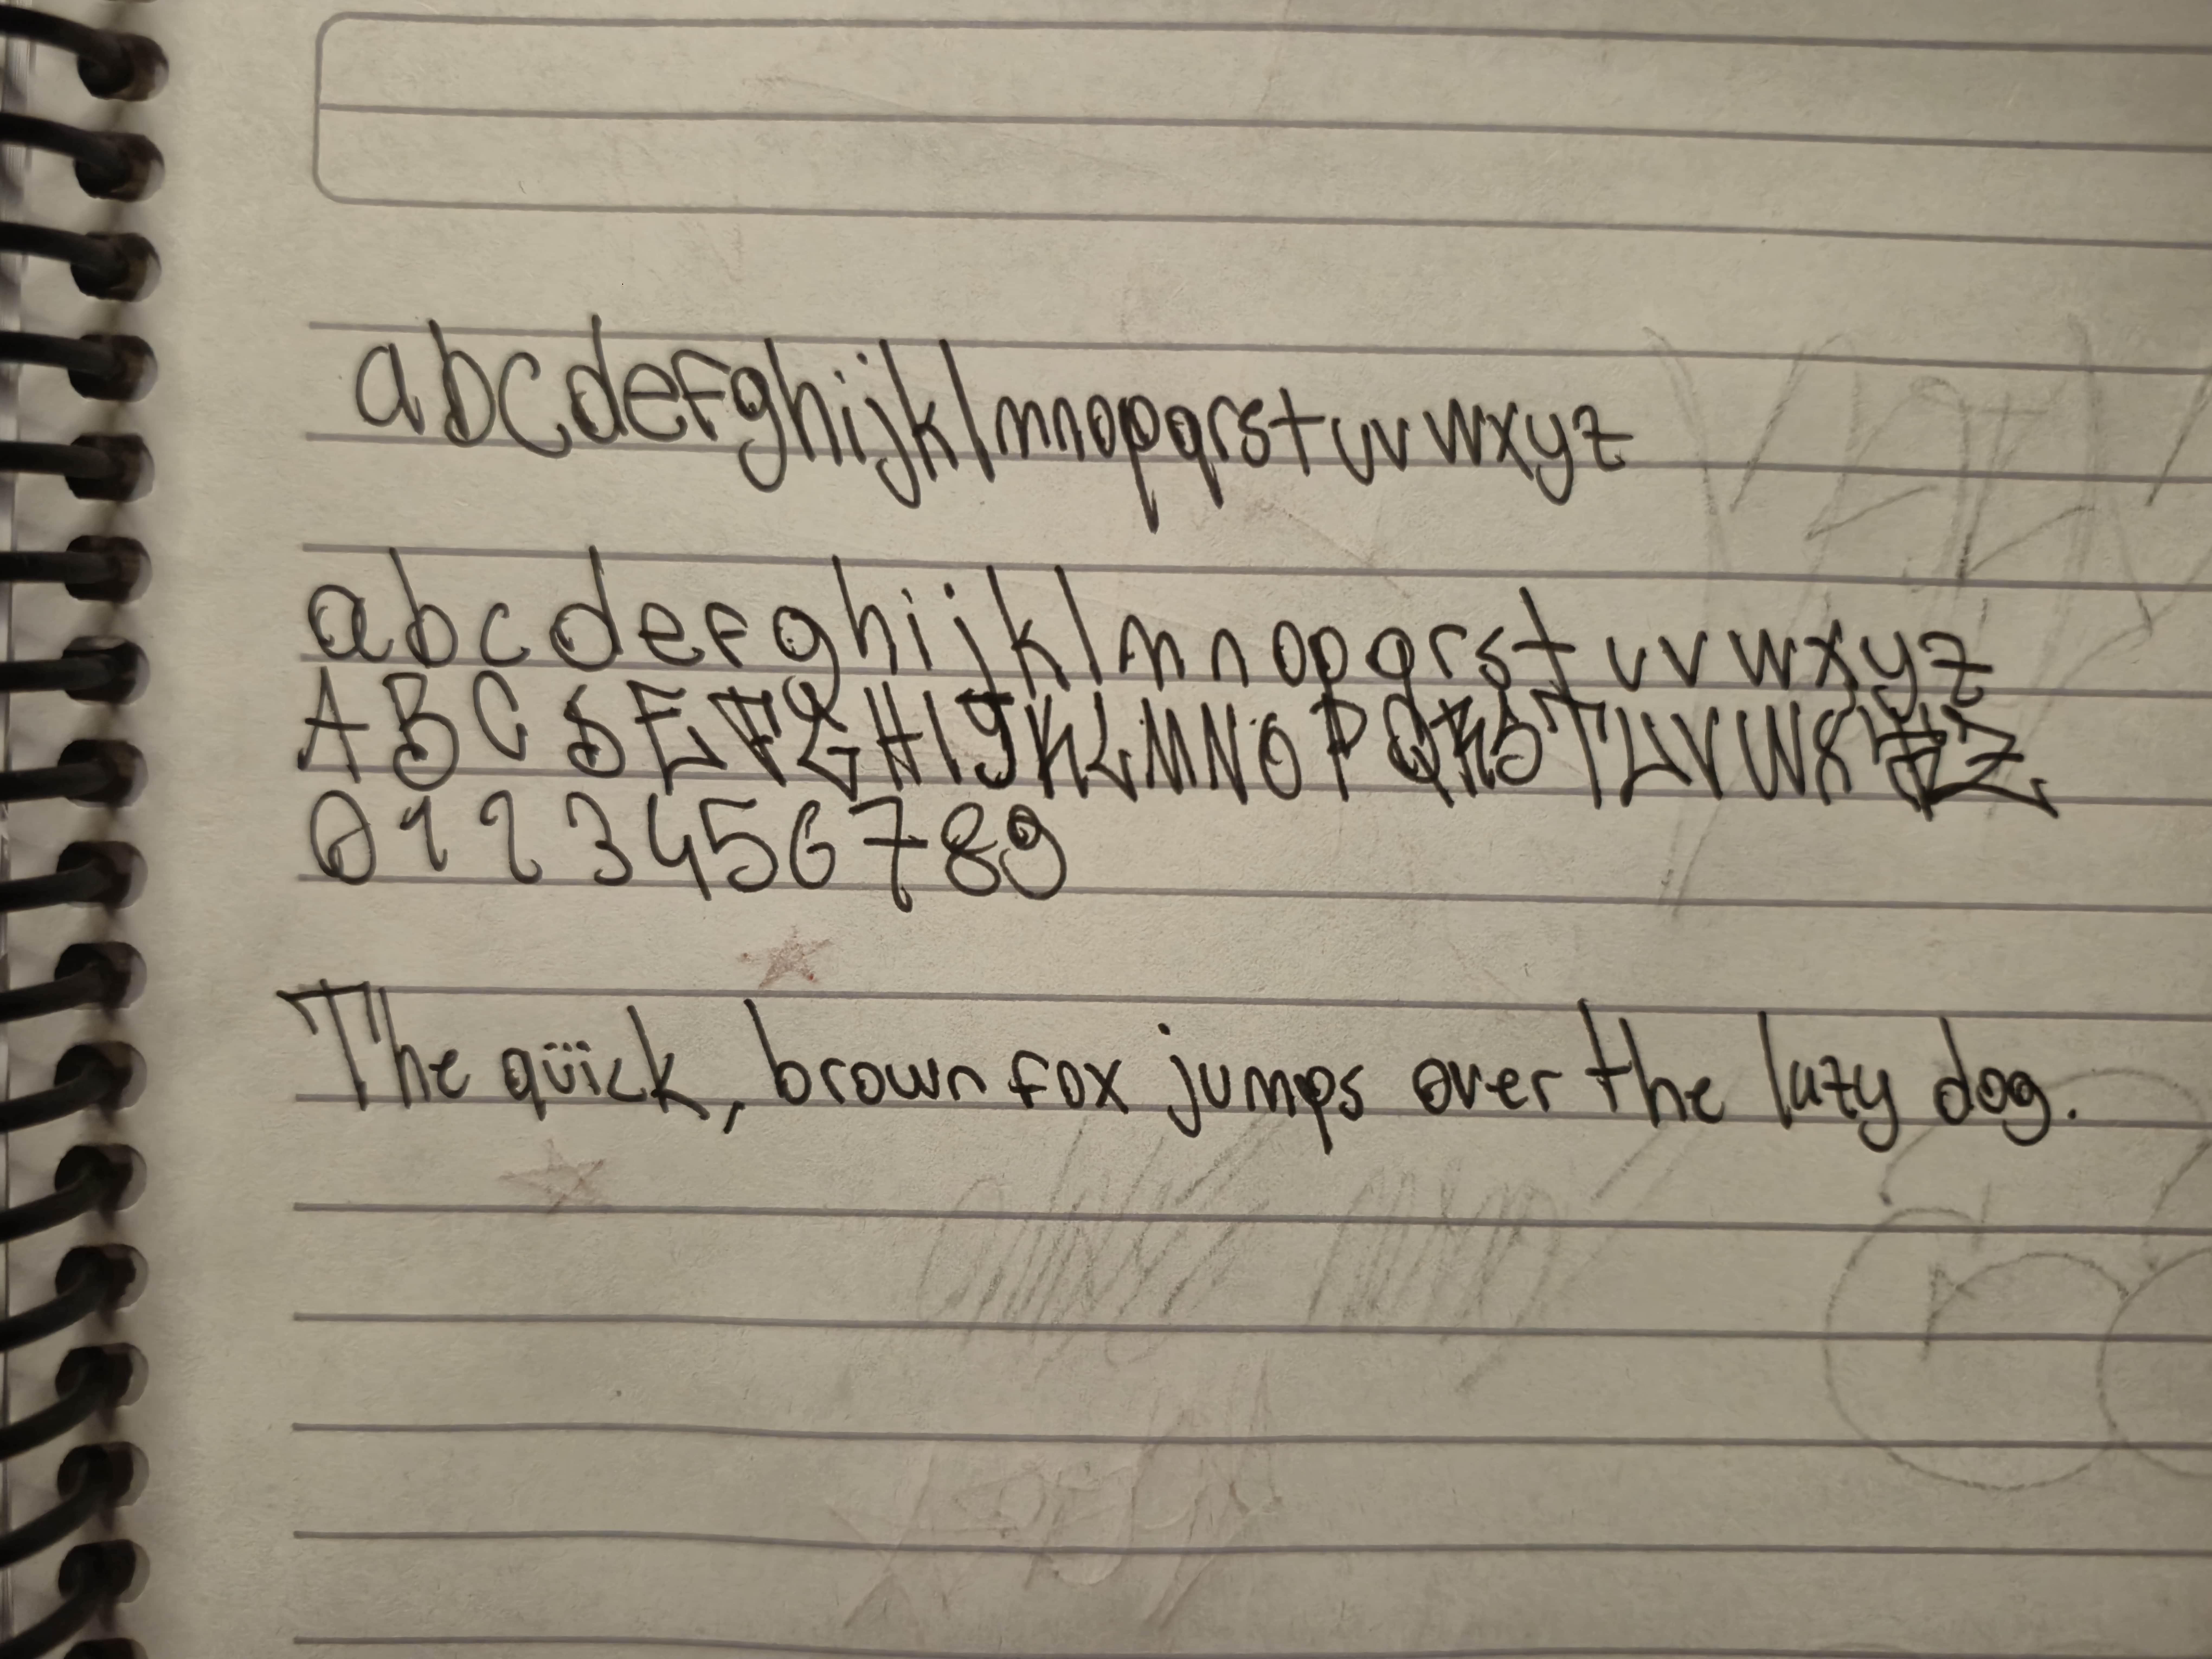 abcdefghijklmnopqrstuvwxyz
a b c d e f g h i j k l m n o p q r s t u v w x y z
A B C D E F G H I J K L M N O P Q R S T U V W X Y Z
0 1 2 3 4 5 6 7 8 9
The qüick, brown fox jumps over the lazy dog.